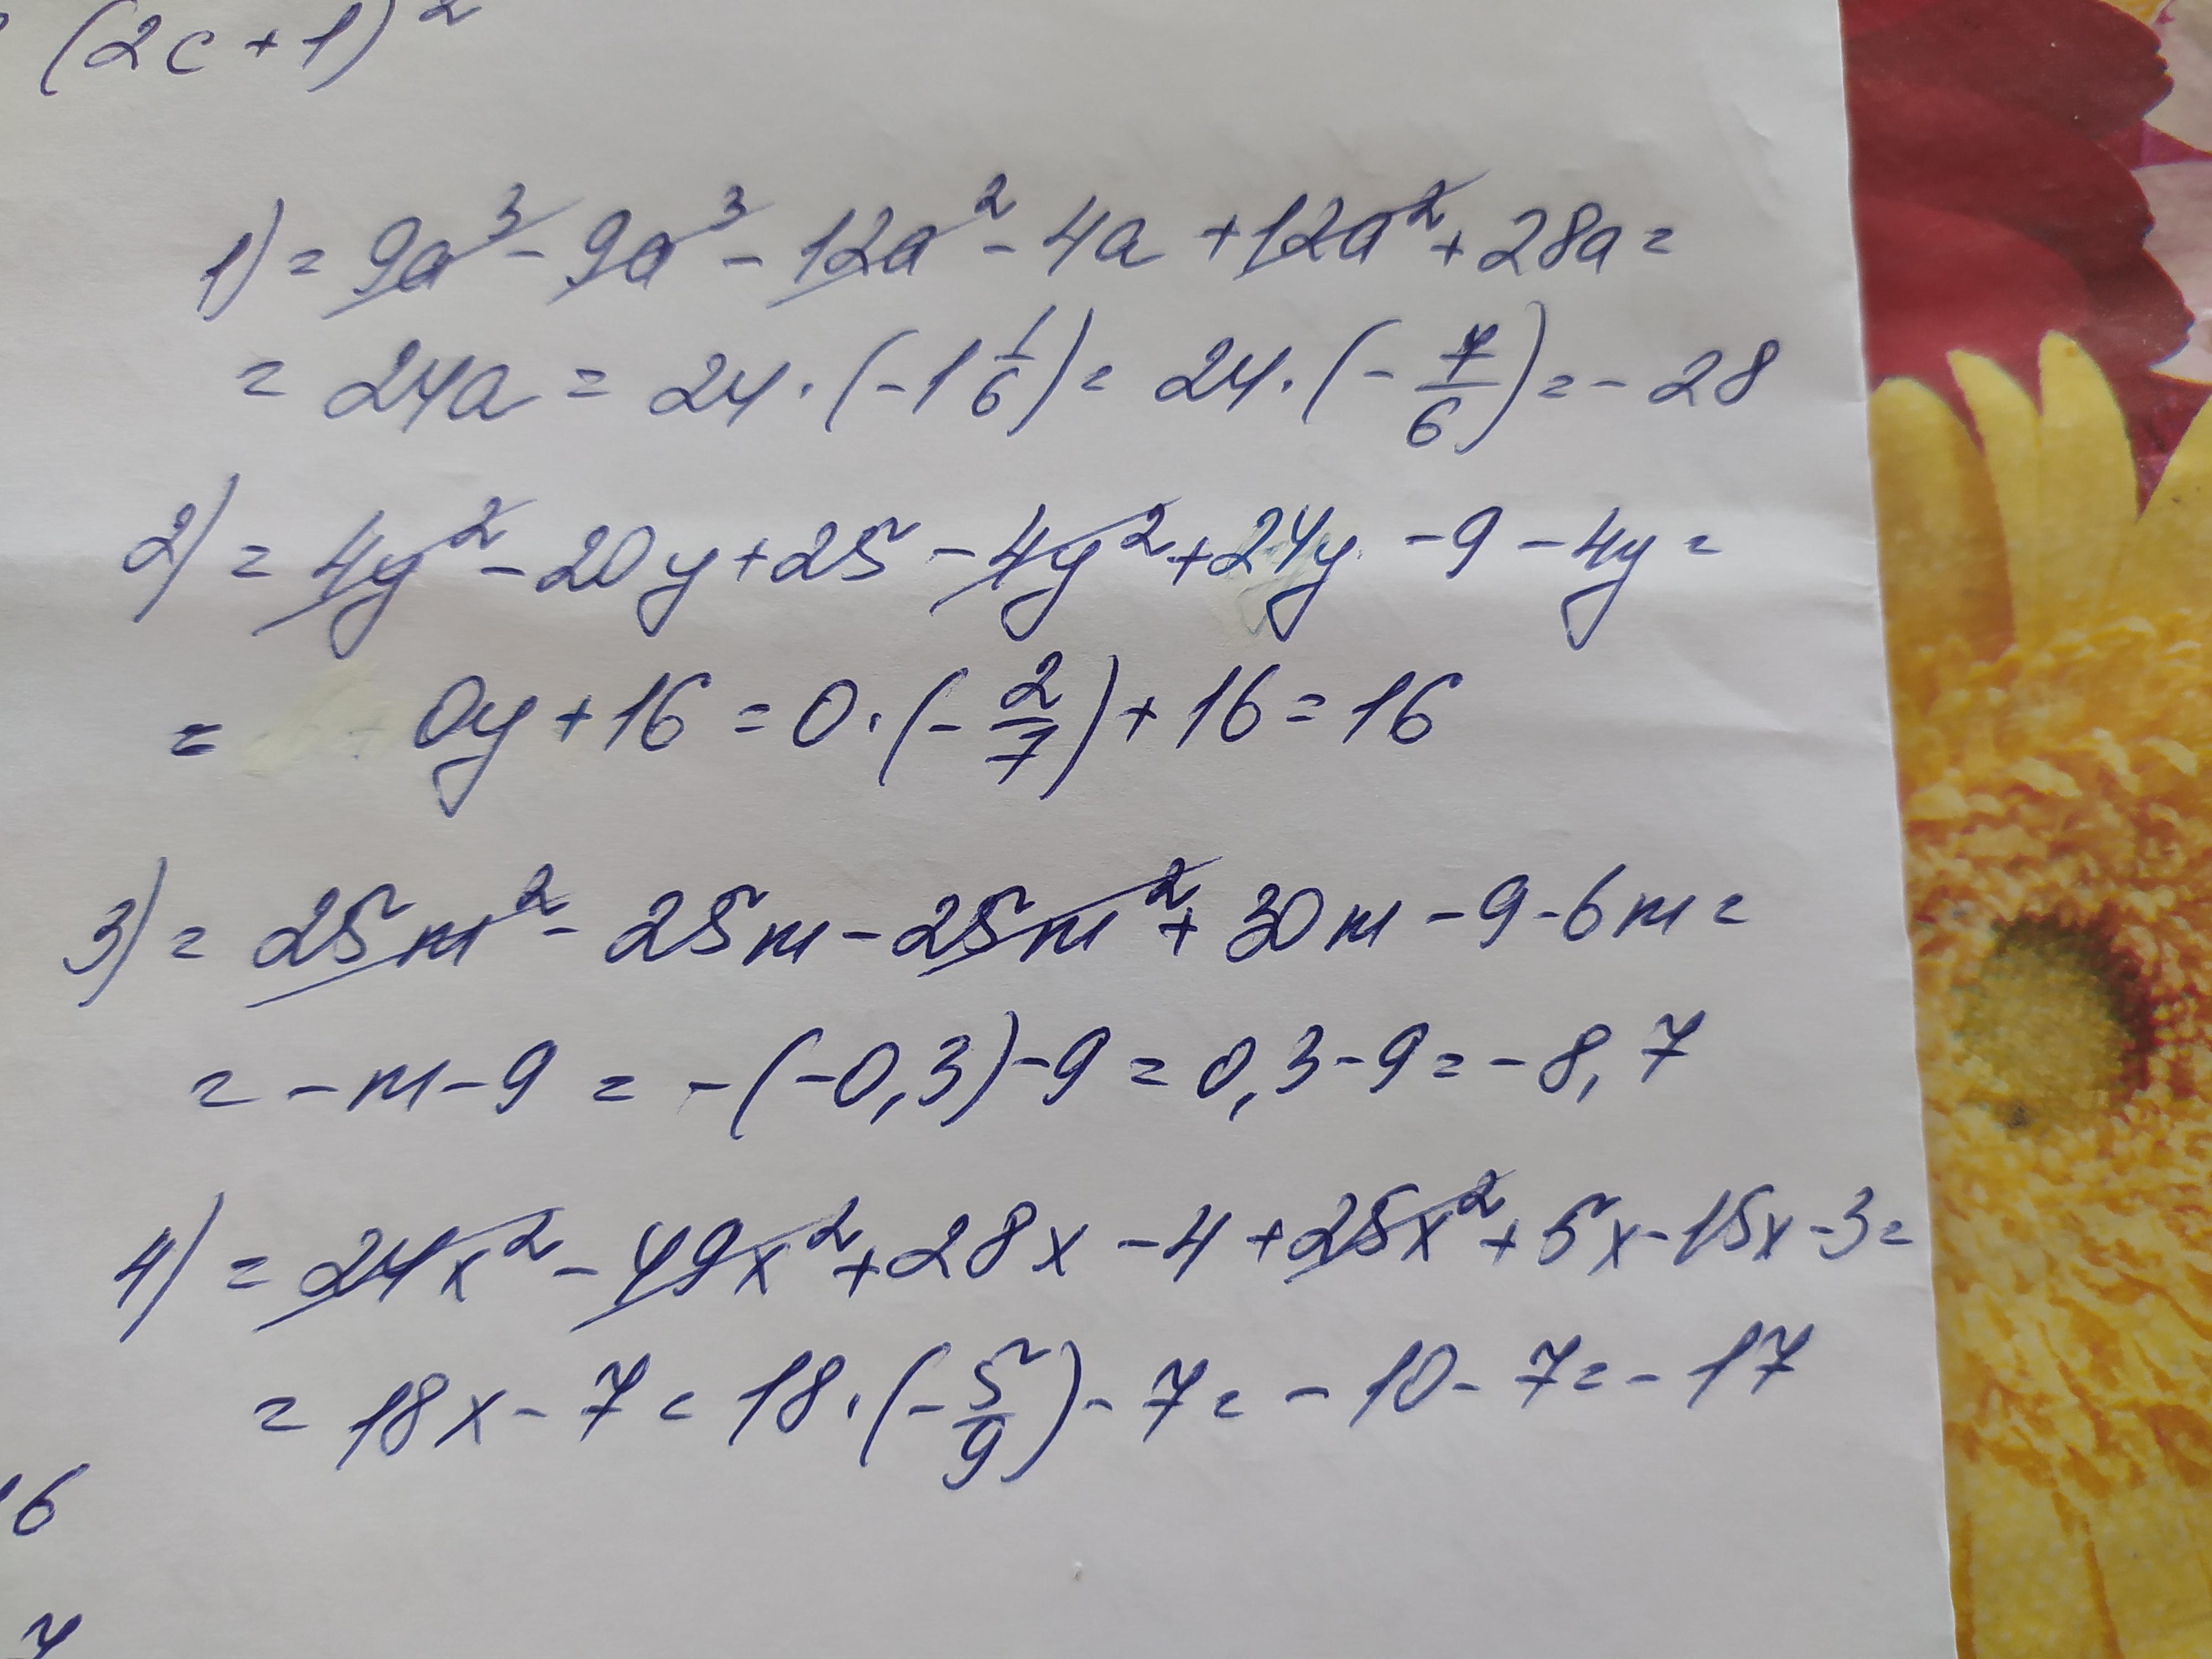 (2c+1)²
1) = 9a³ - 9a³ - 12a² - 4a + 12a² + 28a =
= 24a = 24 · (-1 1/6) = 24 · (- 7/6) = - 28
2) = 4y² - 20y + 25 - 4y² + 24y - 9 - 4y =
= 0y + 16 = 0 · (- 2/7) + 16 = 16
3) = 25m² - 25m - 25m² + 30m - 9 - 6m =
= - m - 9 = - (-0,3) - 9 = 0,3 - 9 = - 8,7
4) = 24x² - 49x² + 28x - 4 + 25x² + 5x - 15x - 3 =
= 18x - 7 = 18 · (- 5/9) - 7 = - 10 - 7 = - 17
6